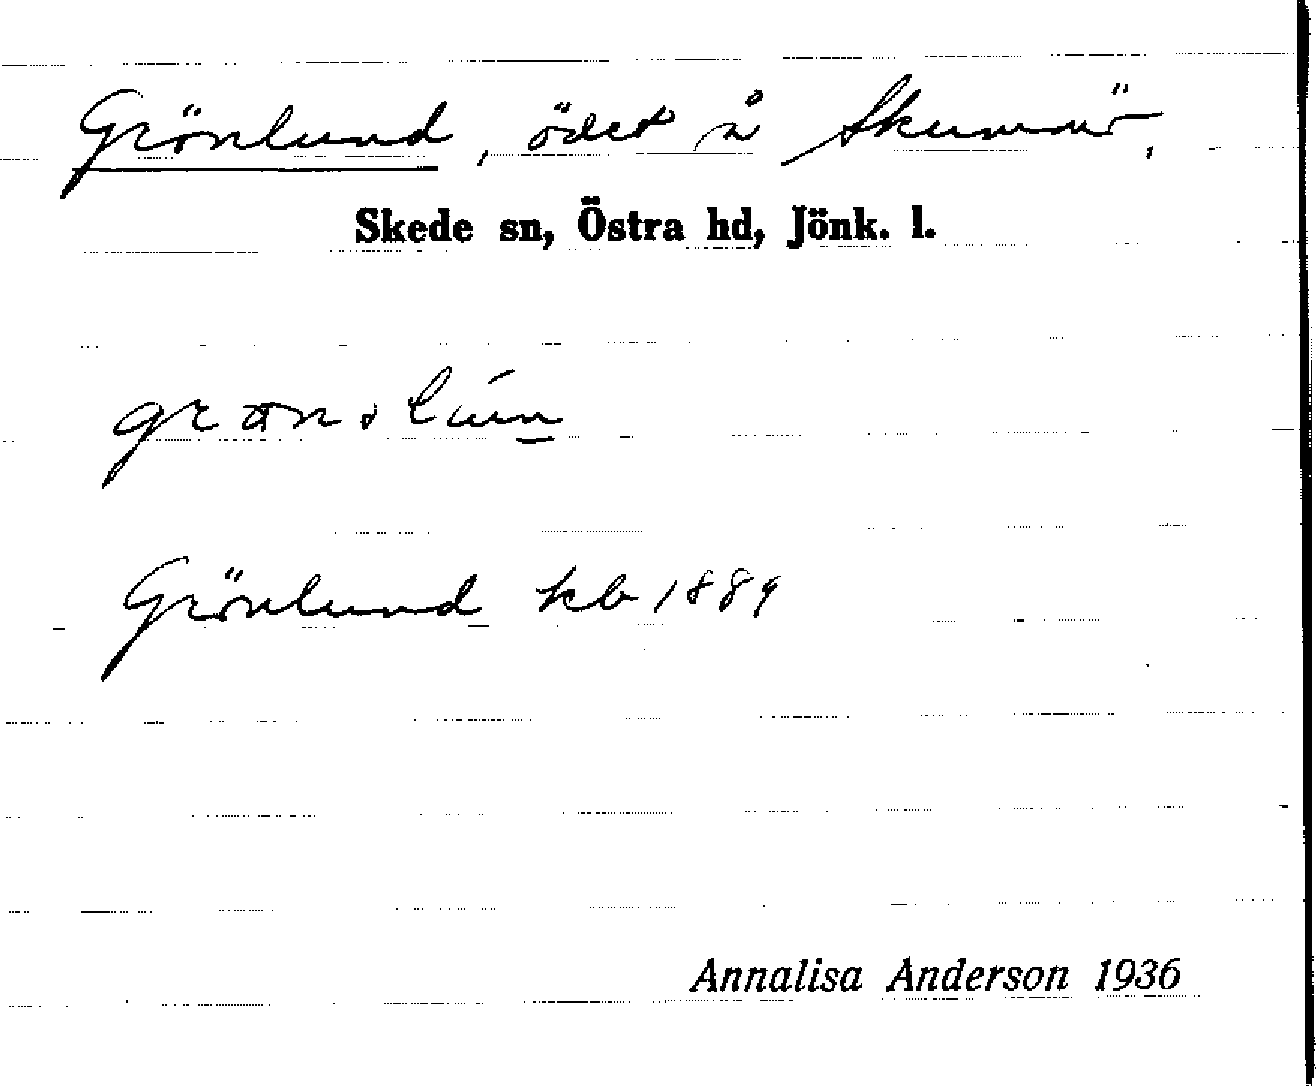 Grönlund, ödet å Skummö,
Skede sn, Östra hd, Jönk. l.
Grönlund kb 1889
Annalisa Anderson 1936